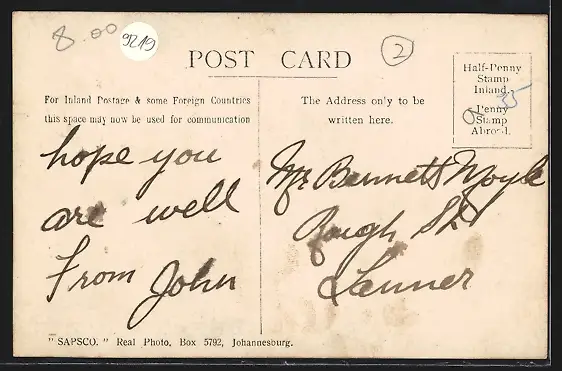 8.00
9219
2
POST CARD
Half-Penny
Stamp
Inland.
Penny
Stamp
Abroad.
For Inland Postage & some Foreign Countries
this space may now be used for communication
The Address only to be
written here.
hope you
are well
From John
Mr Bennett Moyle
St
Lanner
"SAPSCO." Real Photo, Box 5792, Johannesburg.